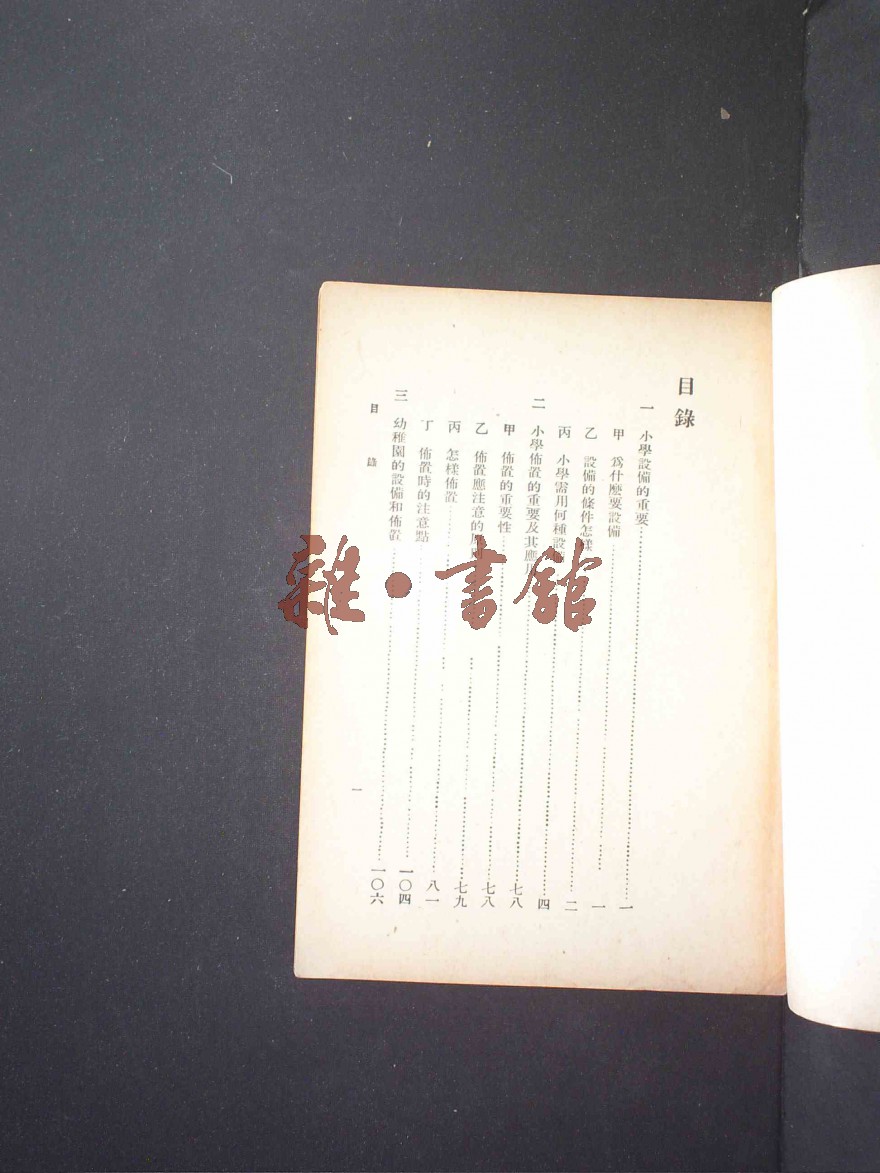 目錄
一 小學設備的重要……一
甲 爲什麽要設備……一
乙 設備的條件怎樣……二
丙 小學需用何種設……四
二 小學佈置的重要及其應……七八
甲 佈置的重要性……七八
乙 佈置應注意的……七九
丙 怎樣佈置……八一
丁 佈置時的注意點……一〇四
三 幼稚園的設備和佈置……一〇六
目錄
一
雜·書館